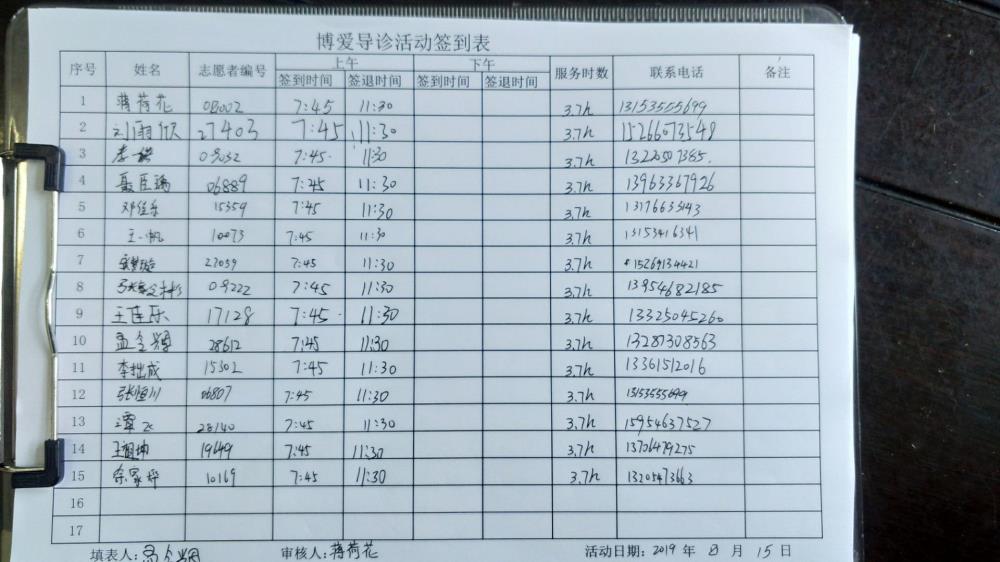 博爱导诊活动签到表
序号 姓名 志愿者编号 上午 下午 服务时数 联系电话 备注
签到时间 签退时间 签到时间 签退时间
1 蒋荷花 08002 7:45 11:30 3.7h 13153555699
2 刘雨欣 27403 7:45 11:30 3.7h 15266073548
3 李 08032 7:45 11:30 3.7h 13220507385
4 聂臣瑀 06889 7:45 11:30 3.7h 13963367926
5 邓佳乐 15359 7:45 11:30 3.7h 13176633143
6 王一帆 10073 7:45 11:30 3.7h 13153416341
7 27039 7:45 11:30 3.7h 15269134421
8 09222 7:45 11:30 3.7h 13954682185
9 王佳乐 17128 7:45 11:30 3.7h 13325045260
10 孟令 28612 7:45 11:30 3.7h 13287308563
11 李拙成 15302 7:45 11:30 3.7h 13361512016
12 张恒川 06807 7:45 11:30 3.7h 13153555699
13 谭飞 28140 7:45 11:30 3.7h 15954637527
14 王坤 19649 7:45 11:30 3.7h 13706479275
15 徐家 10169 7:45 11:30 3.7h 13205473663
16
17
填表人: 审核人:蒋荷花 活动日期:2019 年 8 月 15 日